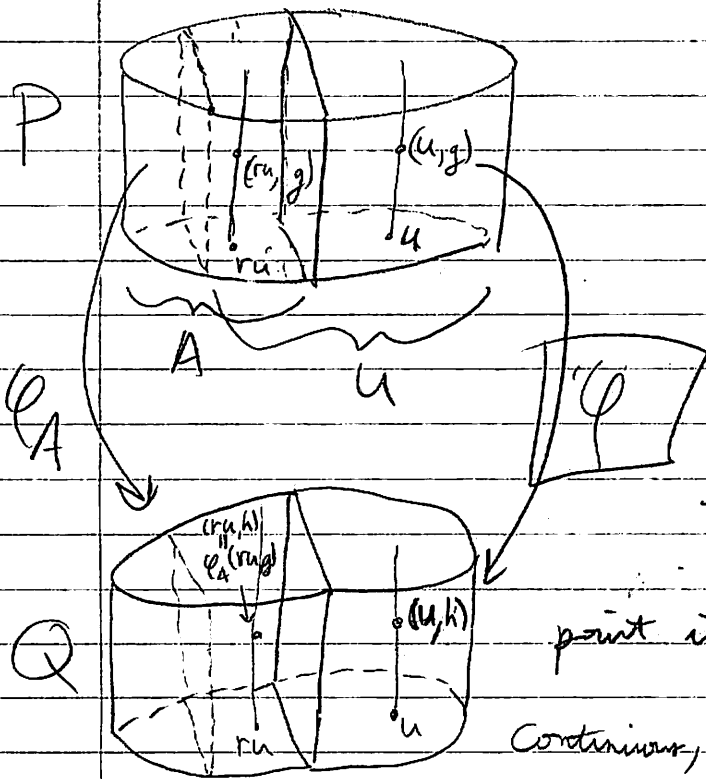 P
(ru, g)
(u, g)
ru
u
A
U
φ_A
φ
(ru, h)
||
φ_A(ru, g)
(u, h)
Q
ru
u
point
Continuous,